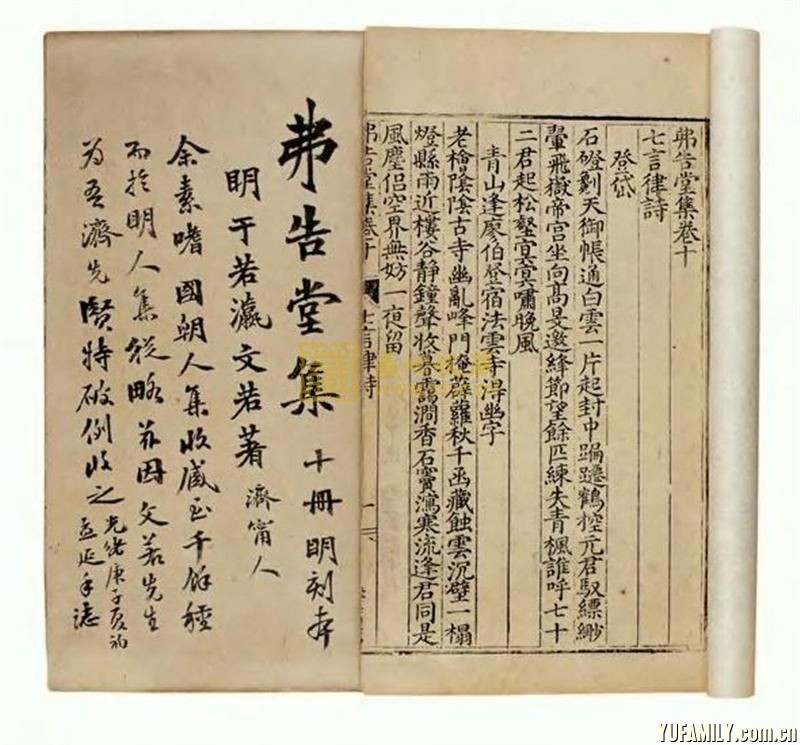 弗告堂集卷十
七言律詩
登岱
石磴劃天御帳通白雲一片起封中蹁躚鶴控元君馭縹緲
翬飛嶽帝宮坐向高旻邀絳節望餘匹練失青楓誰呼七十
二君起松壑冥冥嘯晚風
青山逢廖伯登宿法雲寺得幽字
老檜陰陰古寺幽亂峰門掩薜蘿秋千函藏蝕雲沉壁二榻
燈縣雨近樓谷靜鐘聲收暮靄澗香石竇瀉寒流逢君同是
風塵侶空界無妨一夜留
弗告堂集卷十 七言律詩 一
弗告堂集 十冊明刻本
明于若瀛文若著 濟甯人
余素嗜國朝人集收藏至千餘種
而於明人集從略茲因文若先生
為吾濟先賢特破例收之光緒庚子夏初
孟延手誌
YUFAMILY.com.cn